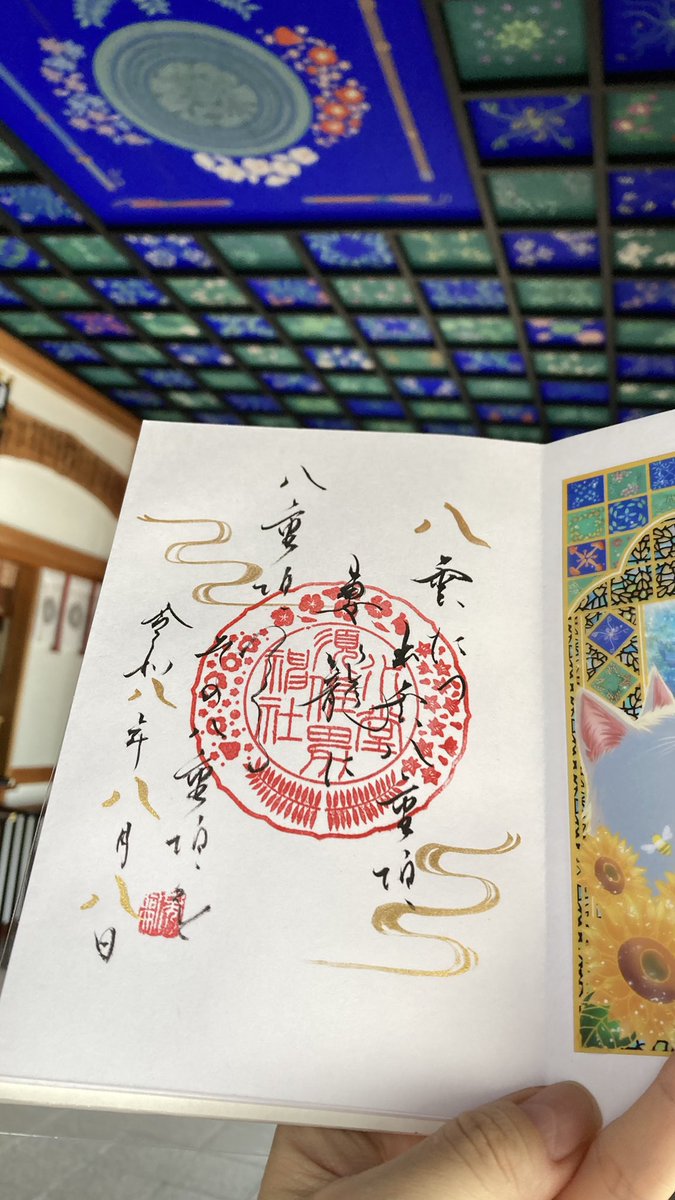 八雲たつ
出雲八重垣、
妻籠に
八重垣つくる
その八重垣を
令和八年八月八日
須佐男
神社